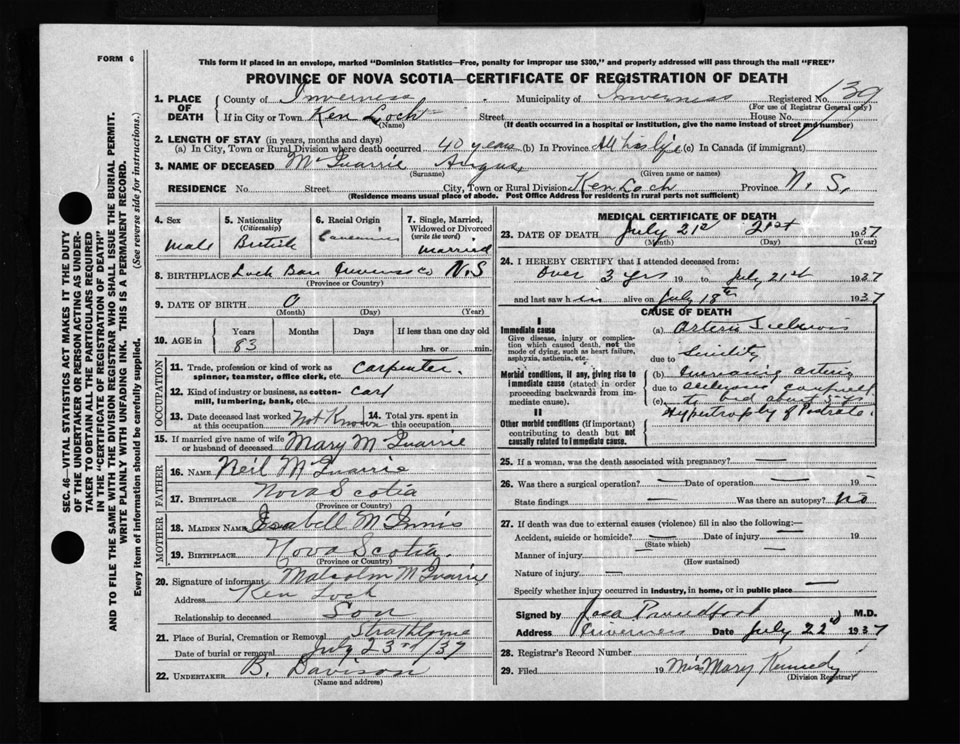 FORM 6
This form if placed in an envelope, marked "Dominion Statistics—Free, penalty for improper use $300," and properly addressed will pass through the mail "FREE"
PROVINCE OF NOVA SCOTIA—CERTIFICATE OF REGISTRATION OF DEATH
1. PLACE OF DEATH County of Inverness Municipality of Inverness Registered No. 139
(For use of Registrar General only)
If in City or Town Ken Loch Street House No.
(Name) (If death occurred in a hospital or institution, give the name instead of street and number)
2. LENGTH OF STAY (in years, months and days)
(a) In City, Town or Rural Division where death occurred 40 years (b) In Province All his life (c) In Canada (if immigrant)
3. NAME OF DECEASED McQuarrie Angus
(Surname) (Given name or names)
RESIDENCE No Street City, Town or Rural Division Ken Loch Province N. S.
(Residence means usual place of abode. Post Office Address for residents in rural parts not sufficient)
SEC. 46—VITAL STATISTICS ACT MAKES IT THE DUTY
OF THE UNDERTAKER OR PERSON ACTING AS UNDER-
TAKER TO OBTAIN ALL THE PARTICULARS REQUIRED
IN THE "CERTIFICATE OF REGISTRATION OF DEATH"
AND TO FILE THE SAME WITH THE DIVISION REGISTRAR WHO SHALL ISSUE THE BURIAL PERMIT.
WRITE PLAINLY WITH UNFADING INK. THIS IS A PERMANENT RECORD.
Every item of information should be carefully supplied. (See reverse side for instructions.)
4. Sex 5. Nationality (Citizenship) 6. Racial Origin 7. Single, Married, Widowed or Divorced (write the word)
Male British Married
8. BIRTHPLACE Loch Ban Inverness Co N.S
(Province or Country)
9. DATE OF BIRTH 0
(Month) (Day) (Year)
10. AGE in Years Months Days If less than one day old
83 hrs. or min.
OCCUPATION
11. Trade, profession or kind of work as spinner, teamster, office clerk, etc. Carpenter.
12. Kind of industry or business, as cotton-mill, lumbering, bank, etc.
13. Date deceased last worked at this occupation Not Known 14. Total yrs. spent in this occupation
15. If married give name of wife or husband of deceased Mary McQuarrie
FATHER
16. NAME Neil McQuarrie
17. BIRTHPLACE Nova Scotia
(Province or Country)
MOTHER
18. MAIDEN NAME Isabell McInnis
19. BIRTHPLACE Nova Scotia.
(Province or Country)
20. Signature of informant Malcolm McQuarrie
Address Ken Loch
Relationship to deceased Son
21. Place of Burial, Cremation or Removal Strathlorne
Date of burial or removal July 23rd/37
22. UNDERTAKER B. Davison
(Name and address)
MEDICAL CERTIFICATE OF DEATH
23. DATE OF DEATH July 21st 21st 1937
(Month) (Day) (Year)
24. I HEREBY CERTIFY that I attended deceased from:
Over 3 yrs 19 to July 21st 1937
and last saw him alive on July 18th 1937
CAUSE OF DEATH
I
Immediate cause (a)
Give disease, injury or complication which caused death, not the mode of dying, such as heart failure, asphyxia, asthenia, etc.
due to Senility
Morbid conditions, if any, giving rise to immediate cause (stated in order proceeding backwards from immediate cause).
(b)
due to
(c) to bed about
II
Other morbid conditions (if important) contributing to death but not causally related to immediate cause.
Hypertrophy of
25. If a woman, was the death associated with pregnancy? —
26. Was there a surgical operation? — Date of operation — 19 —
State findings — Was there an autopsy? No
27. If death was due to external causes (violence) fill in also the following:—
Accident, suicide or homicide? — Date of injury — 19
(State which)
Manner of injury —
(How sustained)
Nature of injury —
Specify whether injury occurred in Industry, in home, or in public place —
Signed by Proudfoot M.D.
Address Inverness Date July 22nd 1937
28. Registrar's Record Number
29. Filed 19 Miss Mary Kennedy
(Division Registrar)